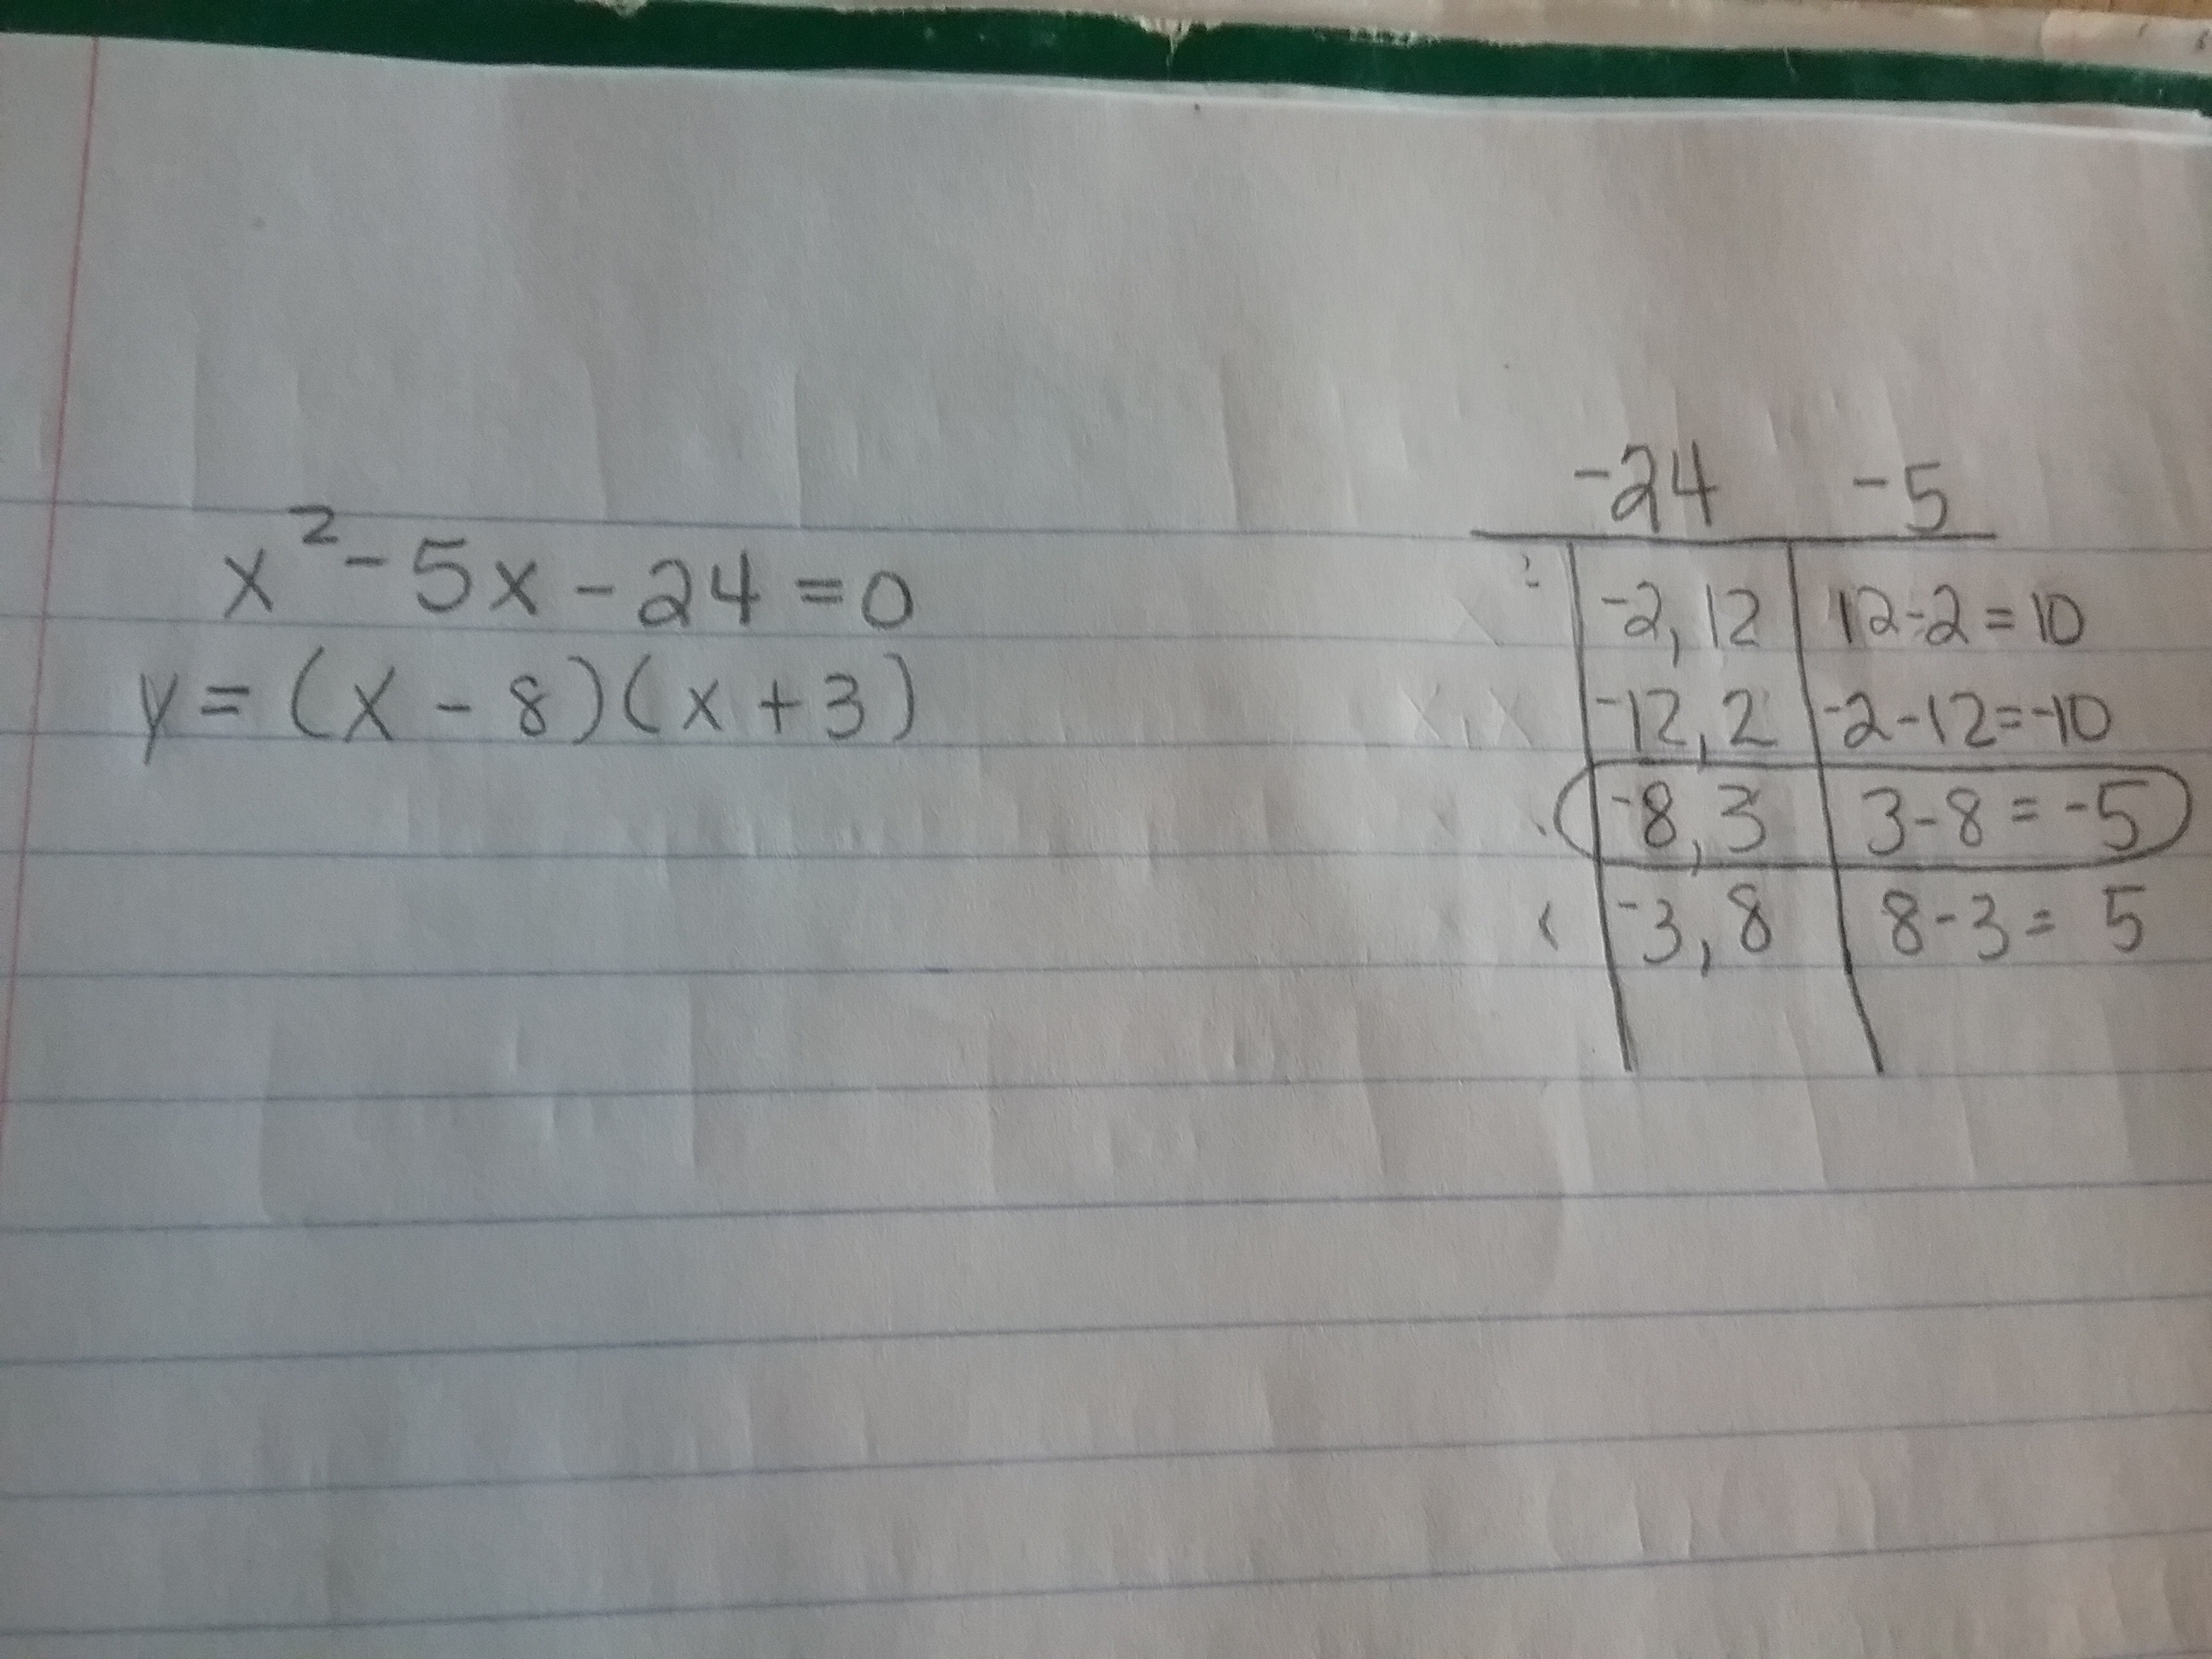 x² - 5x - 24 = 0
y = (x - 8)(x + 3)
-24 -5
-2, 12 12-2 = 10
-12, 2 -2-12=-10
-8, 3 3-8 = -5
-3, 8 8-3 = 5